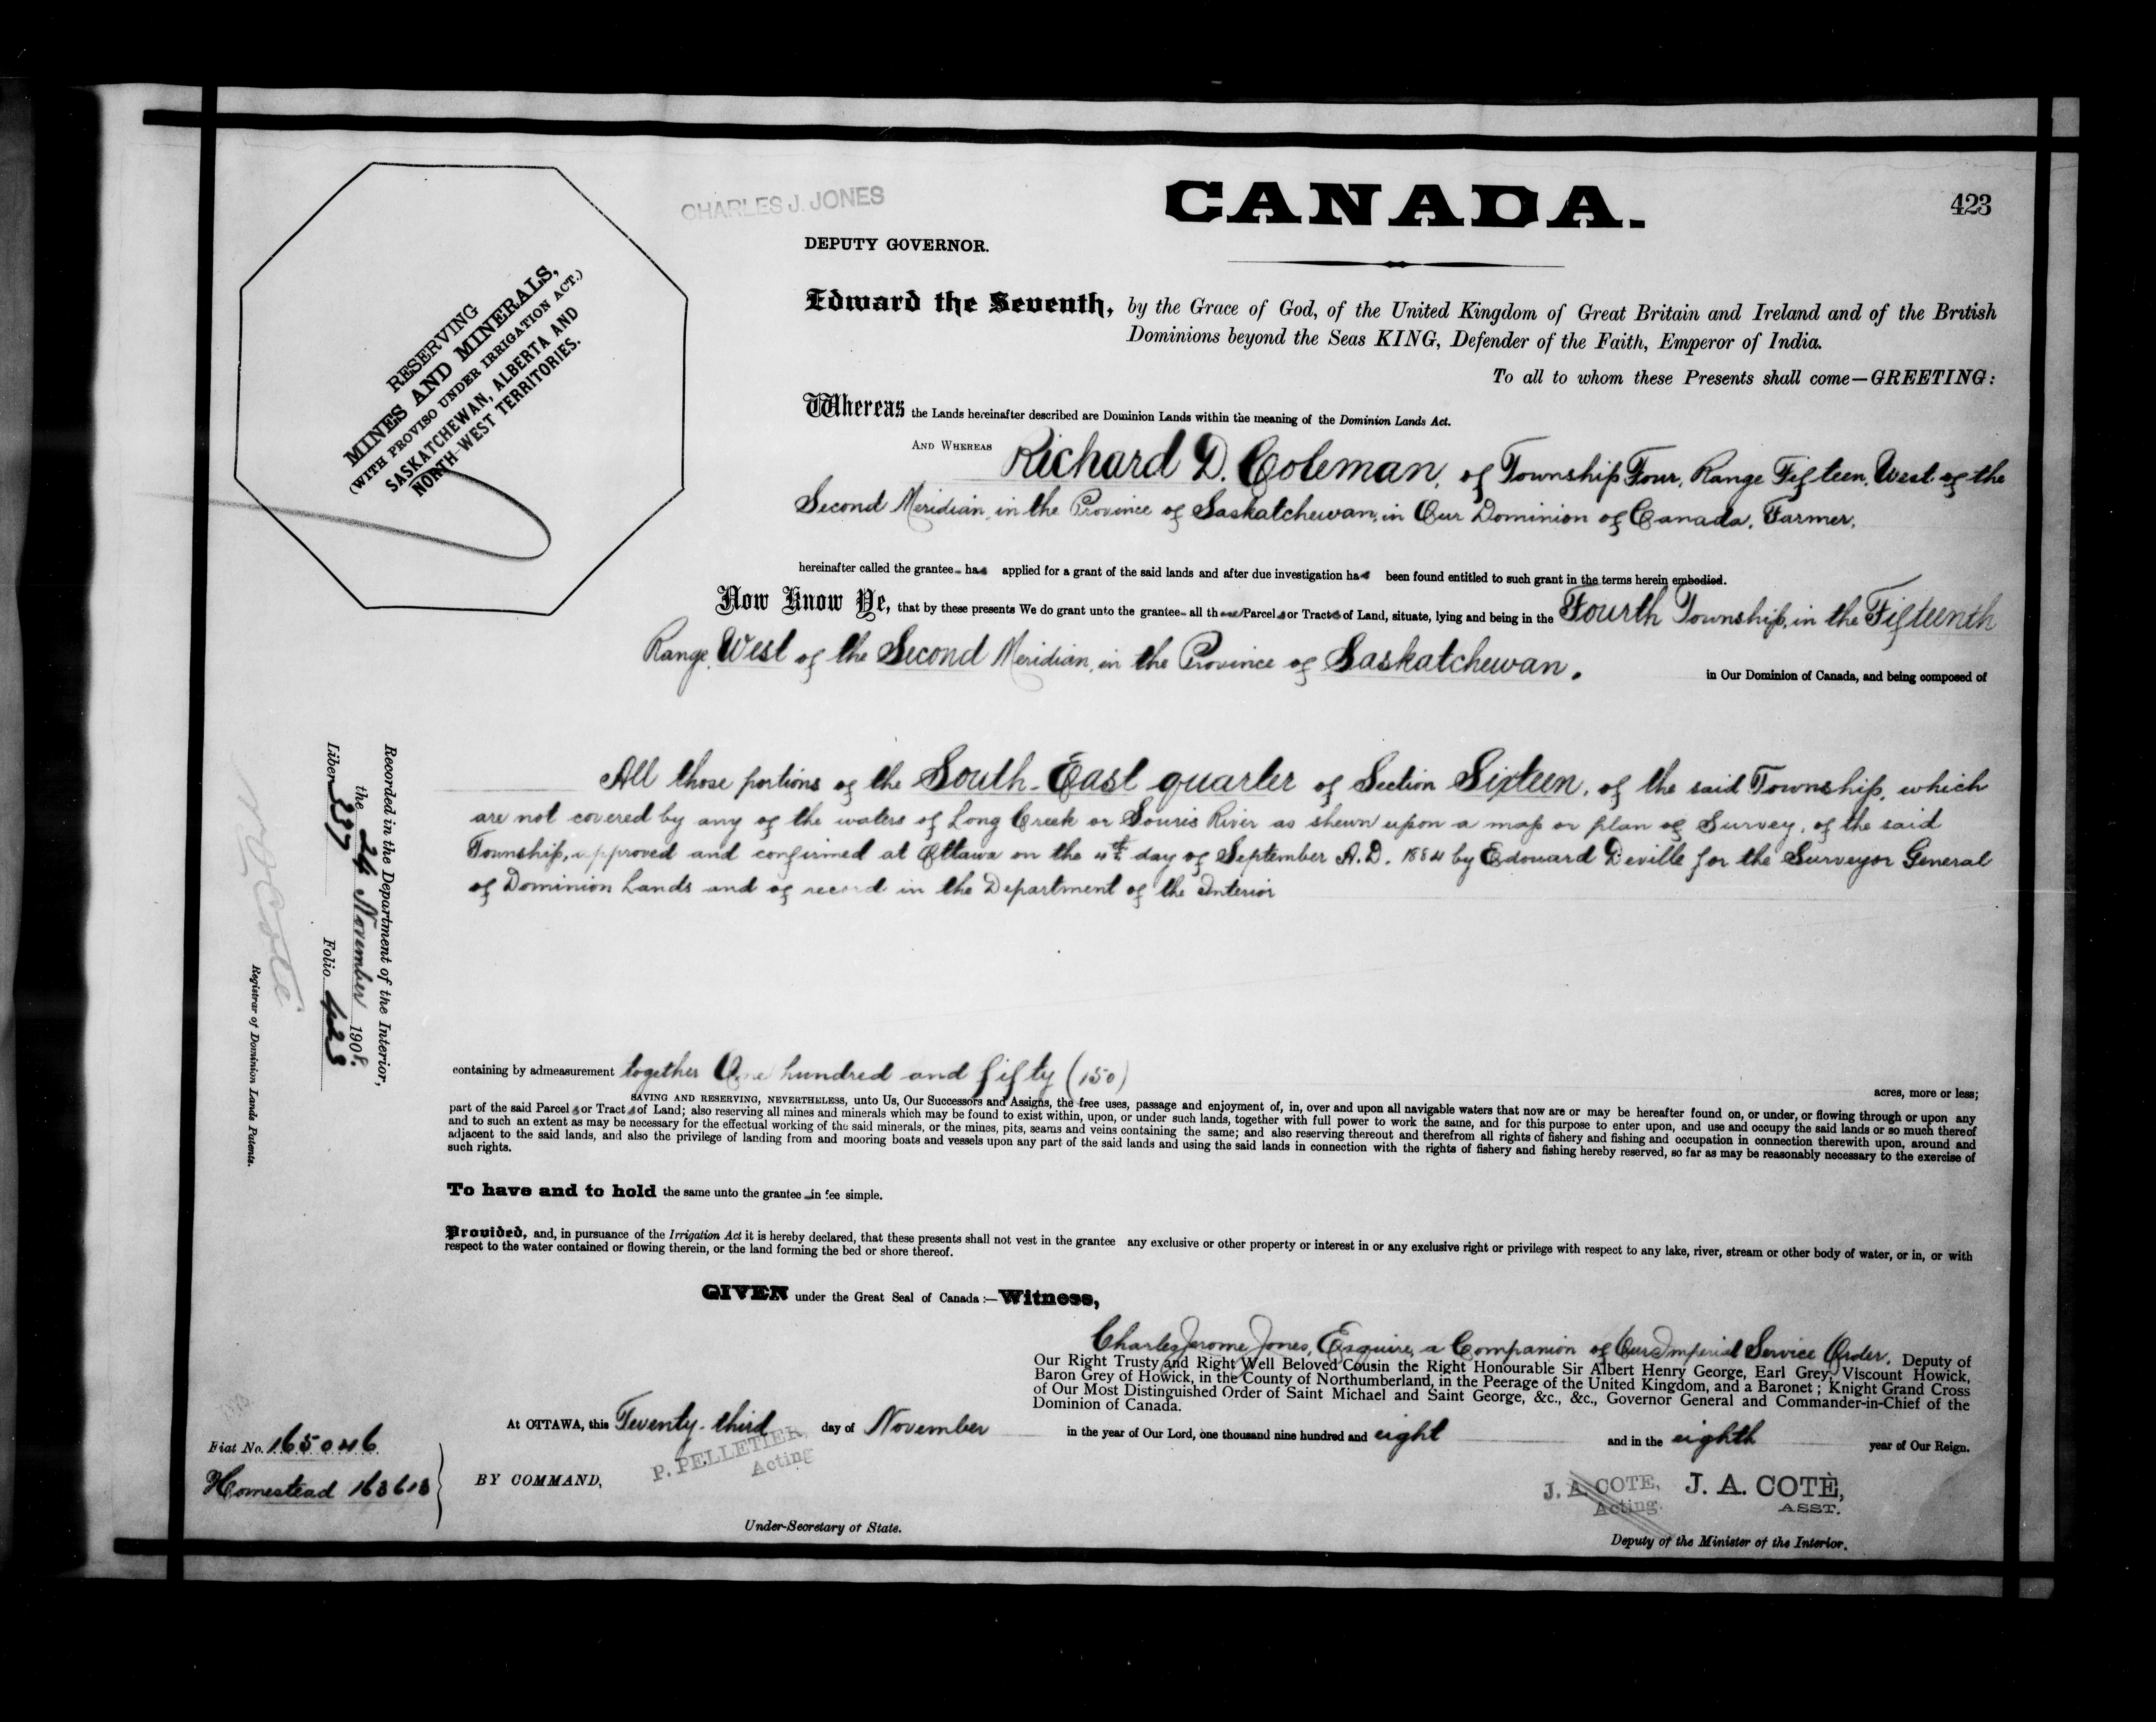 CHARLES J. JONES
CANADA.
423
DEPUTY GOVERNOR.
RESERVING
MINES AND MINERALS,
(WITH PROVISO UNDER IRRIGATION ACT.)
SASKATCHEWAN, ALBERTA AND
NORTH-WEST TERRITORIES.
Edward the Seventh, by the Grace of God, of the United Kingdom of Great Britain and Ireland and of the British
Dominions beyond the Seas KING, Defender of the Faith, Emperor of India.
To all to whom these Presents shall come—GREETING:
Whereas the Lands hereinafter described are Dominion Lands within the meaning of the Dominion Lands Act.
AND WHEREAS Richard D. Coleman, of Township Four, Range Fifteen, West of the
Second Meridian, in the Province of Saskatchewan, in Our Dominion of Canada, Farmer,
hereinafter called the grantee has applied for a grant of the said lands and after due investigation has been found entitled to such grant in the terms herein embodied.
Now Know Ye, that by these presents We do grant unto the grantee all those Parcels or Tracts of Land, situate, lying and being in the Fourth Township, in the Fifteenth
Range, West of the Second Meridian, in the Province of Saskatchewan. in Our Dominion of Canada, and being composed of
All those portions of the South-East quarter of Section Sixteen, of the said Township, which
are not covered by any of the waters of Long Creek or Souris River as shewn upon a map or plan of Survey, of the said
Township, approved and confirmed at Ottawa on the 4th day of September A.D. 1884 by Edouard Deville for the Surveyor General
of Dominion Lands and of record in the Department of the Interior
Recorded in the Department of the Interior,
the 24 November 1908.
Liber 337 Folio 423
N O Coté
Registrar of Dominion Lands Patents.
containing by admeasurement together One hundred and fifty (150) acres, more or less;
SAVING AND RESERVING, NEVERTHELESS, unto Us, Our Successors and Assigns, the free uses, passage and enjoyment of, in, over and upon all navigable waters that now are or may be hereafter found on, or under, or flowing through or upon any
part of the said Parcels or Tracts of Land; also reserving all mines and minerals which may be found to exist within, upon, or under such lands, together with full power to work the same, and for this purpose to enter upon, and use and occupy the said lands or so much thereof
and to such an extent as may be necessary for the effectual working of the said minerals, or the mines, pits, seams and veins containing the same; and also reserving thereout and therefrom all rights of fishery and fishing and occupation in connection therewith upon, around and
adjacent to the said lands, and also the privilege of landing from and mooring boats and vessels upon any part of the said lands and using the said lands in connection with the rights of fishery and fishing hereby reserved, so far as may be reasonably necessary to the exercise of
such rights.
To have and to hold the same unto the grantee in fee simple.
Provided, and, in pursuance of the Irrigation Act it is hereby declared, that these presents shall not vest in the grantee any exclusive or other property or interest in or any exclusive right or privilege with respect to any lake, river, stream or other body of water, or in, or with
respect to the water contained or flowing therein, or the land forming the bed or shore thereof.
GIVEN under the Great Seal of Canada:—Witness,
Charles Jerome Jones, Esquire, a Companion of Our Imperial Service Order, Deputy of
Our Right Trusty and Right Well Beloved Cousin the Right Honourable Sir Albert Henry George, Earl Grey, Viscount Howick,
Baron Grey of Howick, in the County of Northumberland, in the Peerage of the United Kingdom, and a Baronet; Knight Grand Cross
of Our Most Distinguished Order of Saint Michael and Saint George, &c., &c., Governor General and Commander-in-Chief of the
Dominion of Canada.
At OTTAWA, this Twenty-third day of November in the year of Our Lord, one thousand nine hundred and eight and in the eighth year of Our Reign.
P. PELLETIER,
Acting
Fiat No. 165046
Homestead 163613
BY COMMAND,
J. A. COTE, J. A. COTÈ,
Acting. ASST.
Under-Secretary of State.
Deputy of the Minister of the Interior.